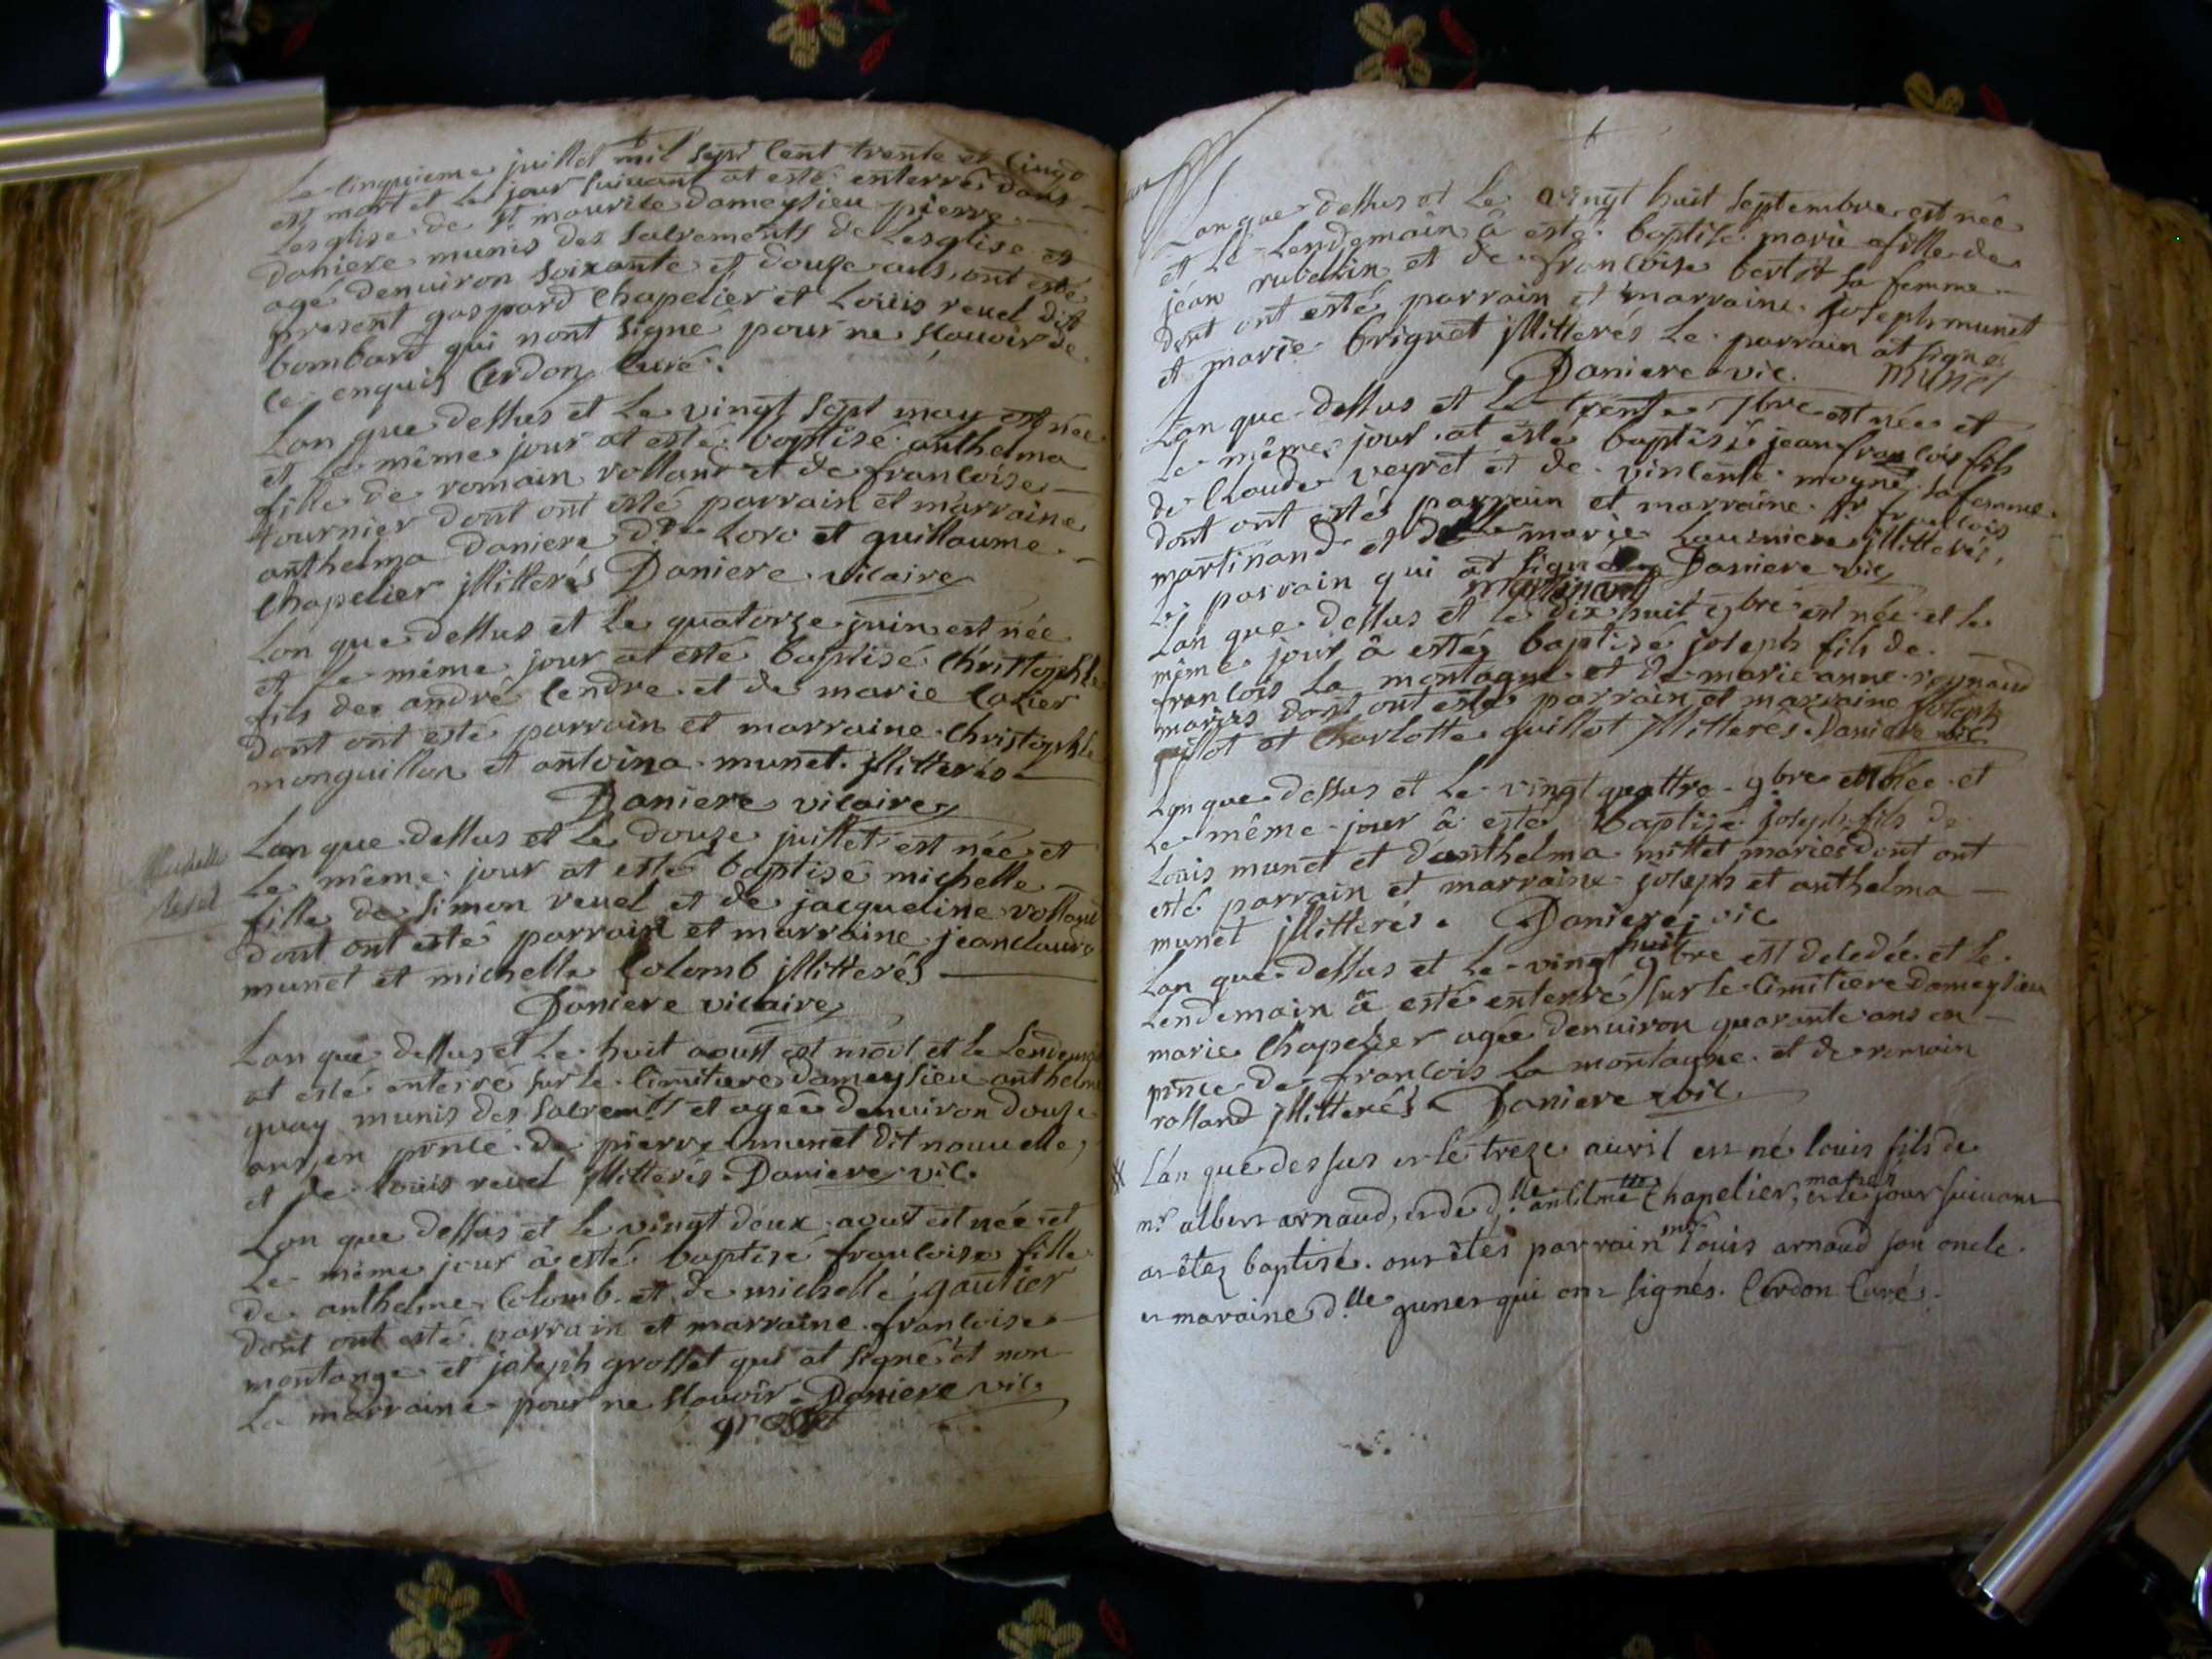 Le cinquieme juillet mil sept cent trente et cinqs
est mort et le jour suivant at esté enterré dans
Lesglise de st maurice dameysieu pierre
Daniere munis des sacrements de Lesglise et
agé denuiron soixante et douze ans, ont esté
present gaspard Chapelier et Louis reuel dit
bombard qui nont signé pour ne scauoir de
ce enquis Cerdon Curé.
Lan que dessus et Le vingt sept may est née
et Le même jour at esté baptisé anthelma
fille de romain rolland et de francoise
tournier dont ont esté parrain et marraine
anthelma Daniere dte Loro et guillaume
Chapelier jllitterés Daniere vicaire
Lan que dessus et Le quatorze juin est née
et Le même jour at esté baptisé Christophle
fils de andré Cendre et de marie Cozier
dont ont esté parrain et marraine Christophle
monguillon et antoina munet jllitterés
Daniere vicaire
Lan que dessus et Le douze juillet est née et
Le même jour at esté baptisé michelle
Michelle
Reuel
fille de simon reuel et de jacqueline rolland
dont ont esté parrain et marraine jeanclaude
munet et michelle Colomb jllitterés
Daniere vicaire
Lan que dessus et Le huit aoust est mort et le Lendemain
at esté enterré sur le Cimitiere dameysieu anthelme
quay munis des sacremts et agée denuiron douze
ans, en pnce de pierre munet dit nouuelle,
et de Louis reuel jllitterés Daniere vic.
Lan que dessus et Le vingt deux aoust est née et
Le même jour à esté baptisé francoise fille
de anthelme Colomb et de michelle gautier
dont ont esté parrain et marraine francoise
montange et joseph grosset qui at signé et non
La marraine pour ne scauoir Daniere vic.
grosset
Lan que dessus et Le vingt huit septembre est née
et Le Lendemain à esté baptisé marie fille de
jean rubellin et de francoise bertet sa femme
dont ont esté parrain et marraine joseph munet
et marie briguet jllitterés Le parrain at signé
Daniere vic. munet
Lan que dessus et Le trente 7bre est née et
Le même jour at esté baptisé jean francois fils
de Claude veyret et de vincente moyne sa femme
dont ont esté parrain et marraine sr francois
martinand et dlle marie Lausniere jllitterés,
Le parrain qui at signé Daniere vic
martinand
Lan que dessus et le dix huit 9bre est née et le
même jour à esté baptisé joseph fils de
francois La montagne et de marie anne reynaud
mariés dont ont esté parrain et marraine joseph
et Charlotte guillot jllitterés Daniere vic
Lan que dessus et Le vingt quattre 9bre est née et
Le même jour à esté baptisé joseph fils de
Louis munet et danthelma mittet mariés dont ont
esté parrain et marraine joseph et anthelma
munet jllitterés. Daniere vic
Lan que dessus et Le vingt huit 9bre est decedée et Le
Lendemain à esté enterré sur le Cimitiere dameysieu
marie Chapelier agée denuiron quarante ans en
pnce de francois La montagne et de romain
rolland jllitterés Daniere vic.
# L'an que dessus et le treze auril est né louis fils de
mr albert arnaud, et de dlle antelmette Chapelier, mariés et le jour suiuant
at étez baptisé. ont étés parrain mr Louis arnaud son oncle
et maraine dlle gunet qui ont signés. Cerdon Curé.